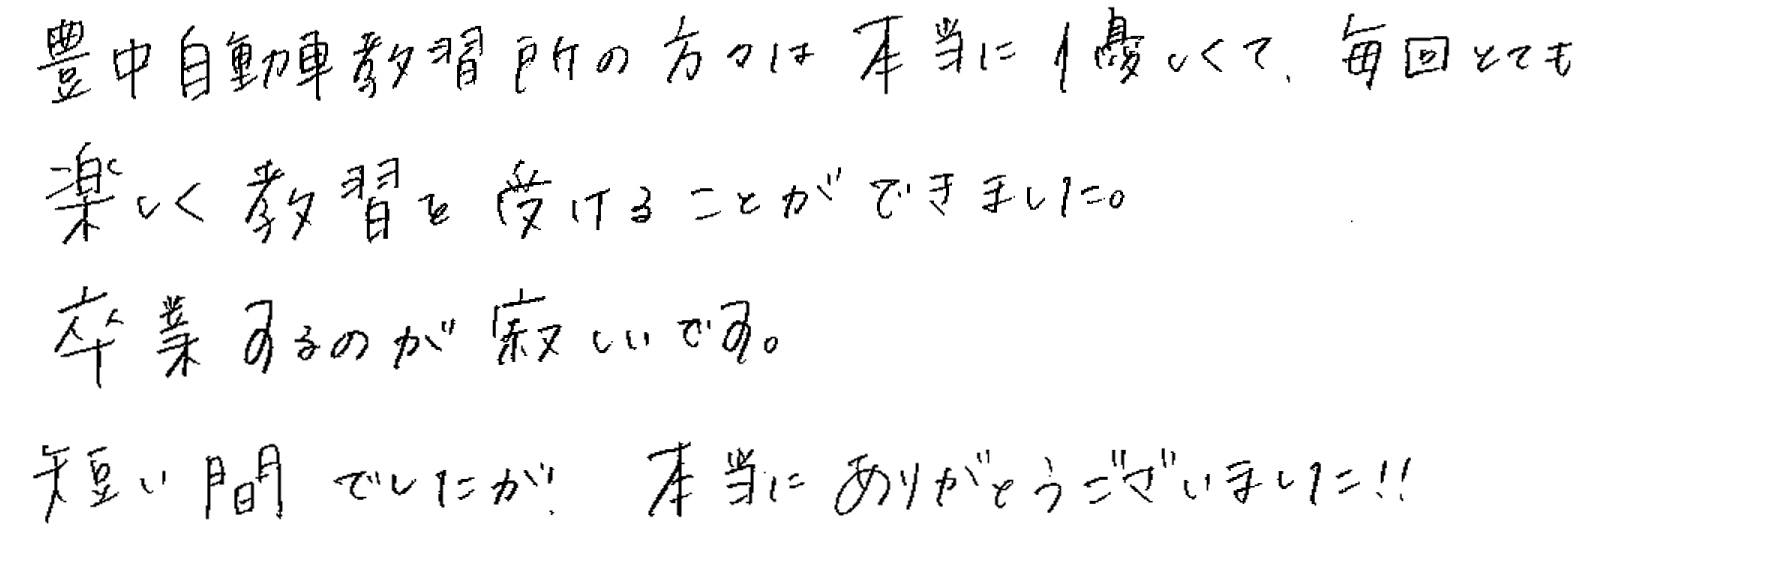 豊中自動車教習所の方々は本当に優しくて、毎回とても
楽しく教習を受けることができました。
卒業するのが寂しいです。
短い間でしたが、本当にありがとうございました!!